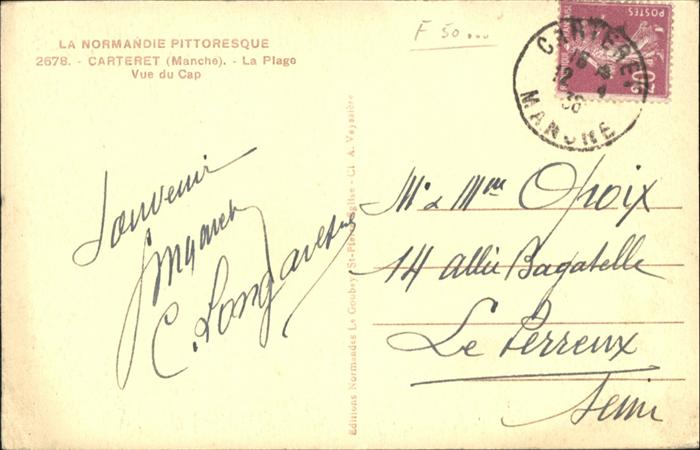 LA NORMANDIE PITTORESQUE
2678. - CARTERET (Manche). - La Plage
Vue du Cap
F 50...
POSTES
20
CARTERET
12 4
36
MANCHE
Souvenir
C. Longavesne
Editions Normandes Le Goubey, St-Pierre-Eglise - Cl. A. Veyssière
Mr & Mme Opoix
14 allée Bagatelle
Le Perreux
Seine